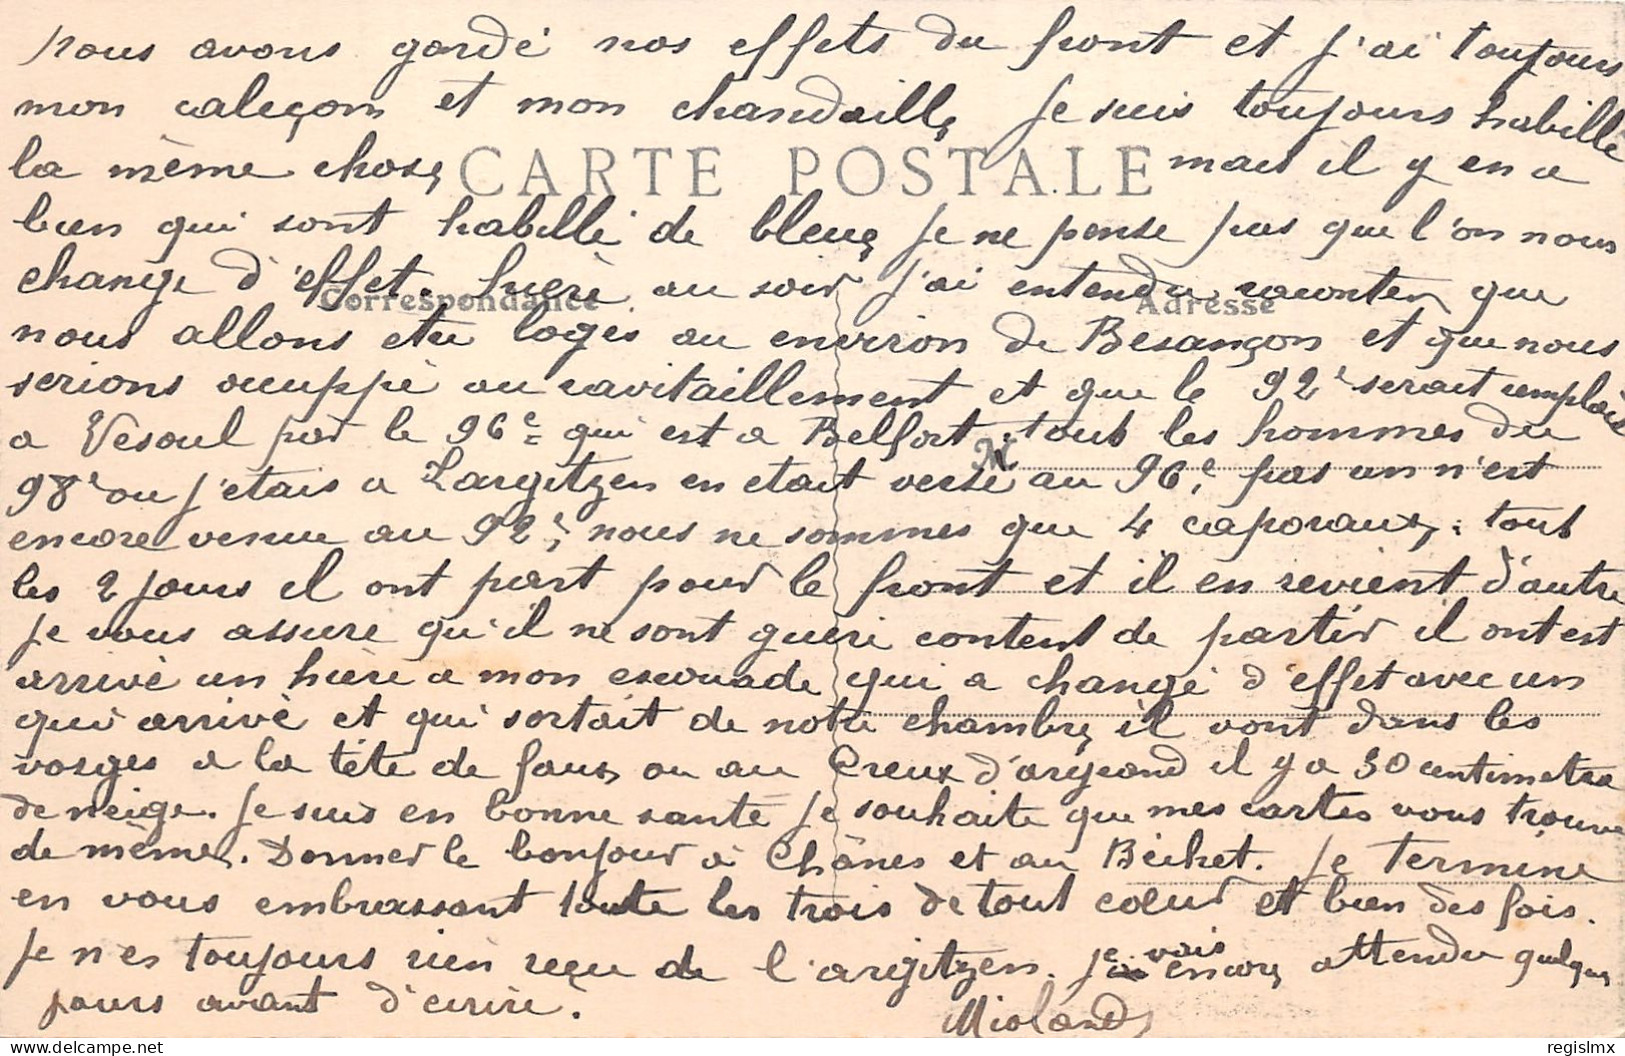 nous avons gardé nos effets du front et j'ai toujours
mon caleçon et mon chandaille, je suis toujours habillé
la même chose, CARTE POSTALE mais il y en a
bien qui sont habillé de bleue, je ne pense pas que l'on nous
change d'effet. hière au soir j'ai entendu raconter que
Correspondance
Adresse
nous allons etre logés au environ de Besançon et que nous
serions occuppé au ravitaillement et que le 92e serait remplacé
a Vesoul par le 96e qui est a Belfort. tout les hommes du
98e ou j'etais a Largitzen en etait versé au 96e, pas un n'est
encore venue au 92e, nous ne sommes que 4 caporaux, tout
les 2 jours il ont part pour le front et il en revient d'autre
je vous assure qu'il ne sont guère content de partir il ont est
arrivé un hière a mon escouade qui a changé d'effet avec un
qui arrivé et qui sortait de notre chambre, il vont dans les
vosges a la tête de faux, ou au Creux d'argeand il y a 30 centimetre
de neige. je suis en bonne santé je souhaite que mes cartes vous trouve
de même. Donner le bonjour à Chânes et au Béchet. je termine
en vous embrassant toute les trois de tout cœur et bien des fois.
je n'es toujours rien reçu de l'argitzen. je vais encore attendre quelques
jours avant d'ecrire.
Mioland
regislmx